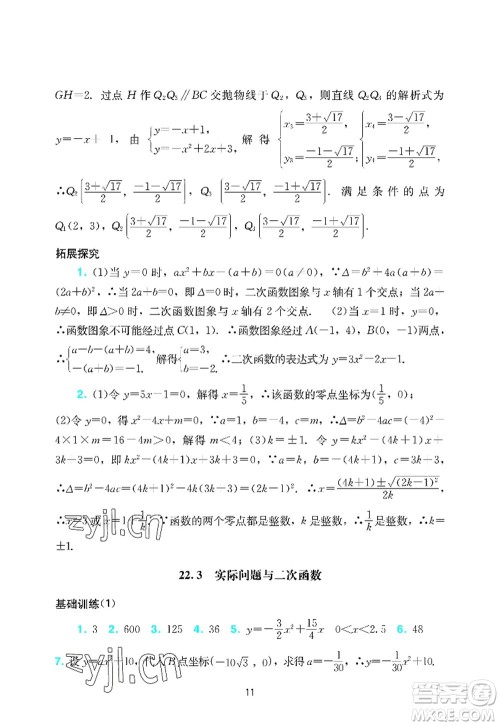 GH=2. 过点 H 作 Q₂Q₃∥BC 交抛物线于 Q₂，Q₃，则直线 Q₂Q₃ 的解析式为
y=-x+1，由 {y=-x+1, y=-x²+2x+3, 解得 {x₃=(3+√17)/2, y₃=(-1-√17)/2, {x₄=(3-√17)/2, y₄=(-1+√17)/2.
∴Q₂((3+√17)/2, (-1-√17)/2), Q₃((3-√17)/2, (-1+√17)/2). 满足条件的点为
Q₁(2，3)，Q₂((3+√17)/2, (-1-√17)/2), Q₃((3-√17)/2, (-1+√17)/2).
拓展探究
1. (1)当 y=0 时，ax²+bx-(a+b)=0(a≠0). ∵Δ=b²+4a(a+b)=
(2a+b)²，∴当 2a+b=0，即 Δ=0 时，二次函数图象与 x 轴有 1 个交点；当 2a+
b≠0，即 Δ>0 时，二次函数图象与 x 轴有 2 个交点. (2)当 x=1 时，y=0，
∴函数图象不可能经过点 C(1，1). ∴函数图象经过 A(-1，4)，B(0，-1)两点，
∴{a-b-(a+b)=4, -(a+b)=-1. ∴{a=3, b=-2. ∴二次函数的解析式为 y=3x²-2x-1.
2. (1)令 y=5x-1=0，解得 x=1/5，∴该函数的零点坐标为(1/5，0)；
(2)令 y=0，得 x²-bx+4=0. ∵函数有唯一零点，∴Δ=b²-4ac=(-b)²-
4×1×4=0，解得 b=±4；(3)k=±1. 令 y=0，得 kx²-(4k+1)x+3k+3=0，
∴Δ=b²-4ac=(4k+1)²-4k(3k+3)=(2k-1)². ∴x=((4k+1)±√(2k-1)²)/2k.
∴x=3 或 x=1+1/k. ∵函数的两个零点都是整数，∴1/k是整数. ∵k 是整数，∴k=
±1.
22.3 实际问题与二次函数
基础训练(1)
1. 3 2. 600 3. 125 4. 36 5. y=-3/2x²+15/4x 0<x<2.5 6. 48
7. 设 y=ax²+10，代入 B 点坐标(-10√3，0)，求得 a=-1/30，∴y=-1/30x²+10.
11
zyjl.cn
zyjl.cn
答案圈
MXQE.COM